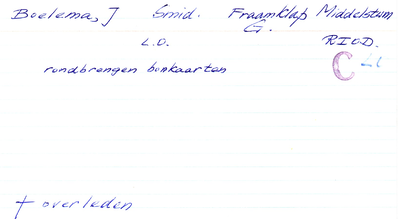 Boelema, J Smid. Fraamklap Middelstum
G.
L.O. RIOD.
C LO
rondbrengen bonkaarten
+ overleden